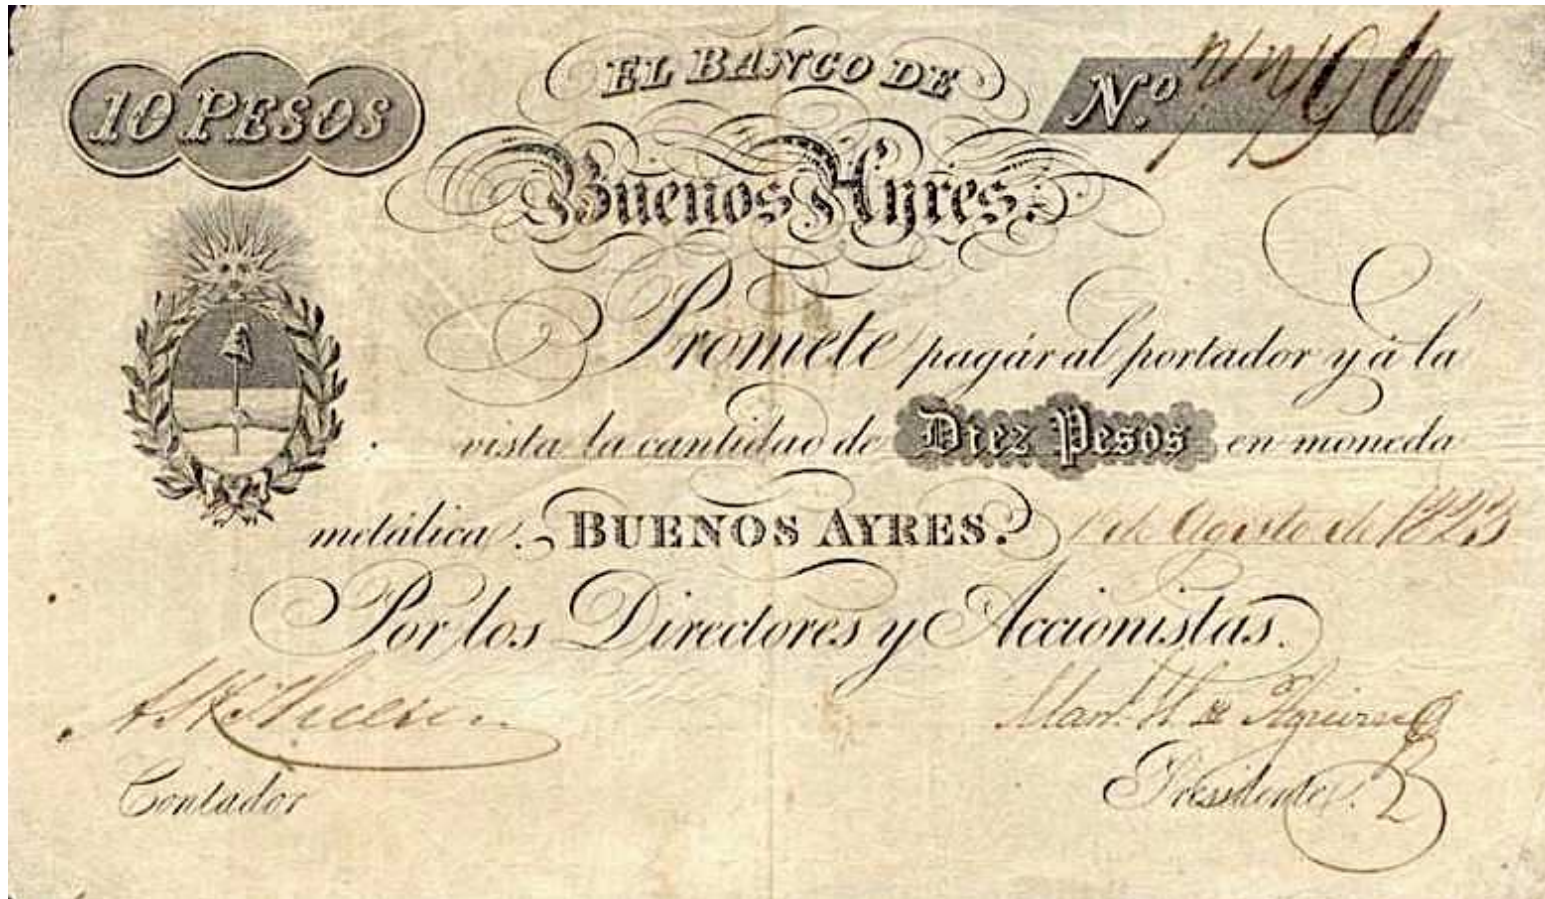 10 PESOS
EL BANCO DE
Nº
Buenos Ayres.
Promete pagár al portador y á la
vista la cantidad de Diez Pesos en moneda
metálica. BUENOS AYRES. 1º de Agosto de 1823
Por los Directores y Accionistas.
Contador
Presidente.